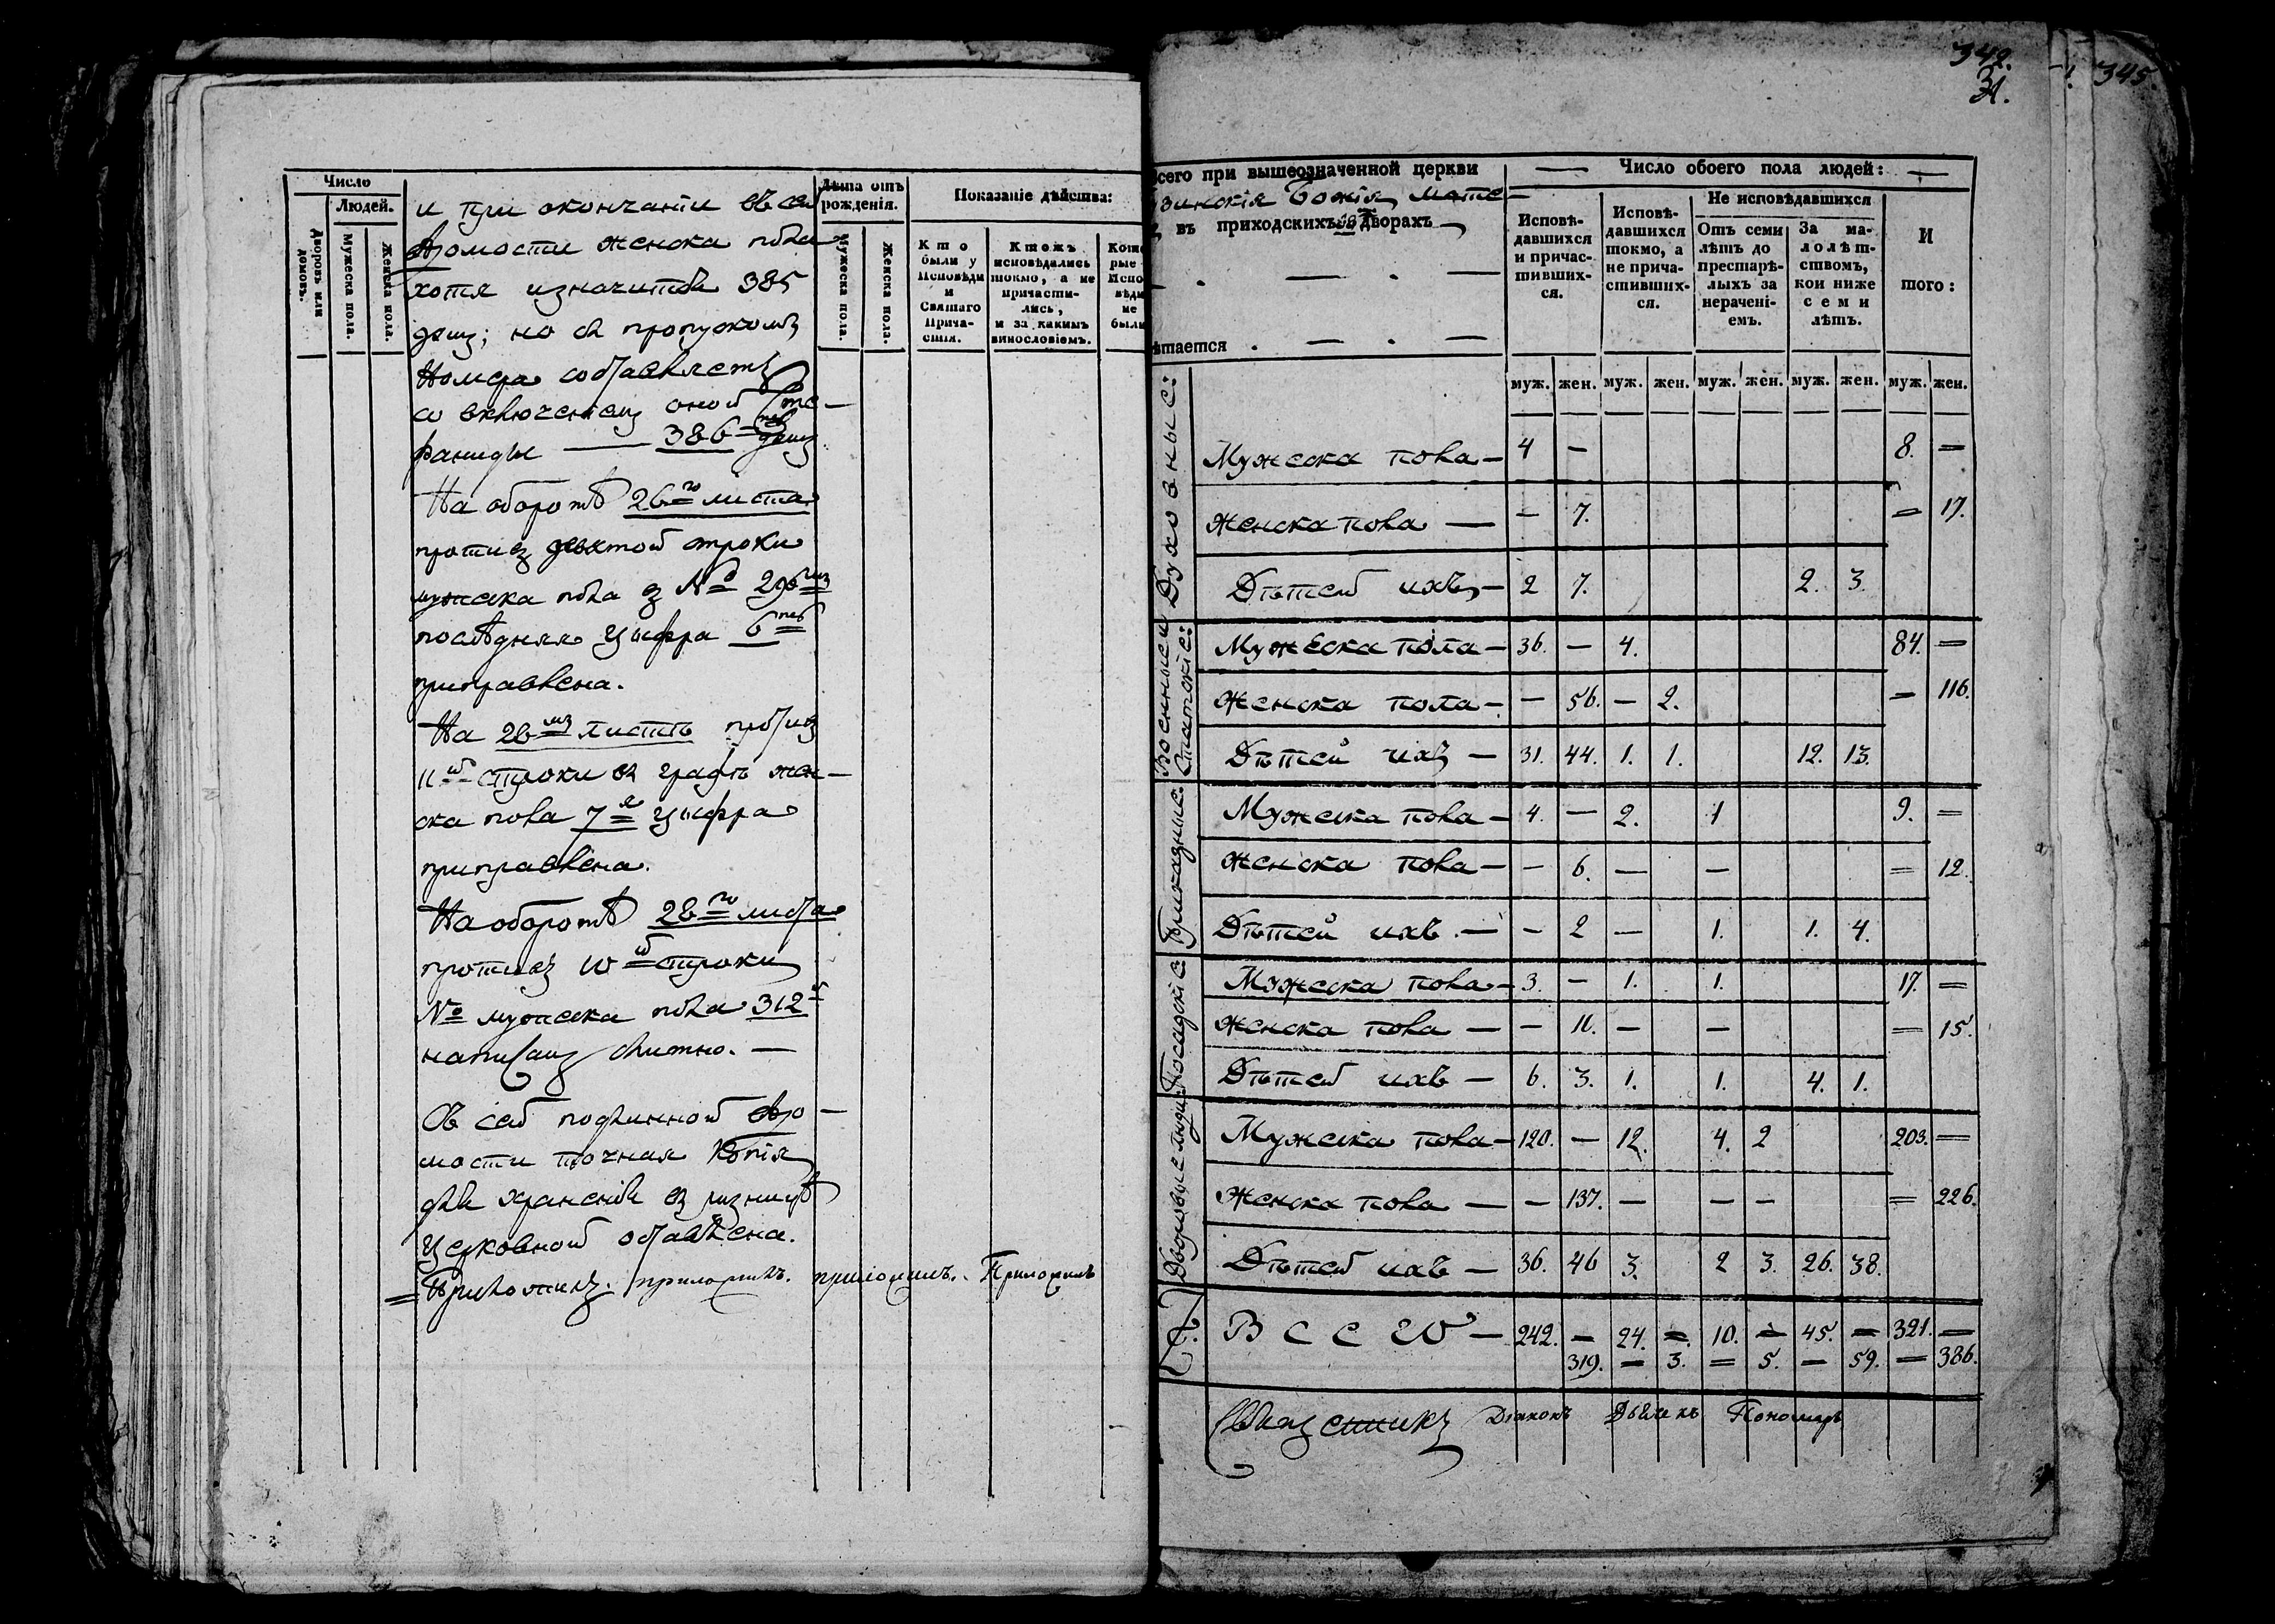 Число
Людей.
Дворовъ или домовъ.
Мужеска пола.
Женска пола.
Лѣта отъ рождения.
Мужеска пола.
Женска пола.
Показаніе дѣйства:
Кто были у Исповѣди и Святаго Причастія.
Ктожъ исповѣдались токмо, а не причастились, и за какимъ винословіемъ.
Которые Исповѣди не были
и при окончаніи въ сей
вѣдомости женска пола
хотя и значится 385
душъ; но съ пропускомъ
Номера составляетъ
со включениемъ оной Сте-
раниды — 386-ть душъ
На оборотѣ 26го листа
противъ девятой строки
мужеска пола въ № 296мъ
послѣдняя цыфра 6ть
приправлена.
На 28мъ листѣ противъ
11й строки въ графѣ жен-
ска пола 7я цыфра
приправлена.
На оборотѣ 28го листа
противъ 10й строки
№ мужеска пола 312й
написанъ слитно. —
Съ сей подлинной вѣдо-
мости точная Копія
для храненія въ ризницѣ
церковной оставлена.
Приложилъ. приложилъ. приложилъ. Приложилъ
342.
31.
345.
всего при вышеозначенной церкви
Божія мате-
въ приходскихъ дворахъ
Число обоего пола людей:
Исповѣдавшихся и причастившихся.
Исповѣдавшихся токмо, а не причастившихся.
Не исповѣдавшихся
Отъ семи лѣтъ до престарѣлыхъ за нерачениемъ.
За малолѣтствомъ, кои ниже семи лѣтъ.
И того:
муж. жен. муж. жен. муж. жен. муж. жен. муж. жен.
Духовныс:
Мужеска пола — 4 — 8. =
Женска пола — — 7. = 17.
Дѣтей ихъ — 2 7. 2. 3.
Военныеи Статскіе:
Мужеска пола — 36. — 4. 84. =
Женска пола — — 56. — 2. = 116.
Дѣтей ихъ — 31. 44. 1. 1. 12. 13.
Приказные:
Мужеска пола — 4. — 2. 1 9. =
Женска пола — — 6. — — = 12.
Дѣтей ихъ. — — 2 — 1. 1. 4.
Посадскіе
Мужеска пола — 3. — 1. 1. 17. =
Женска пола — — 11. — — = 15.
Дѣтей ихъ — 6. 3. 1. 1. 4. 1.
Дворовые люди:
Мужеска пола — 120. — 12. 4. 2 203. =
Женска пола — — 137. — — — = 226.
Дѣтей ихъ — 36. 46 3. 2 3. 26. 38.
Всего — 242. — 24. =. 10. = 45. = 321. =
319. — 3. = 5. — 59. — 386.
Священникъ Діаконъ Дьячекъ Пономарь